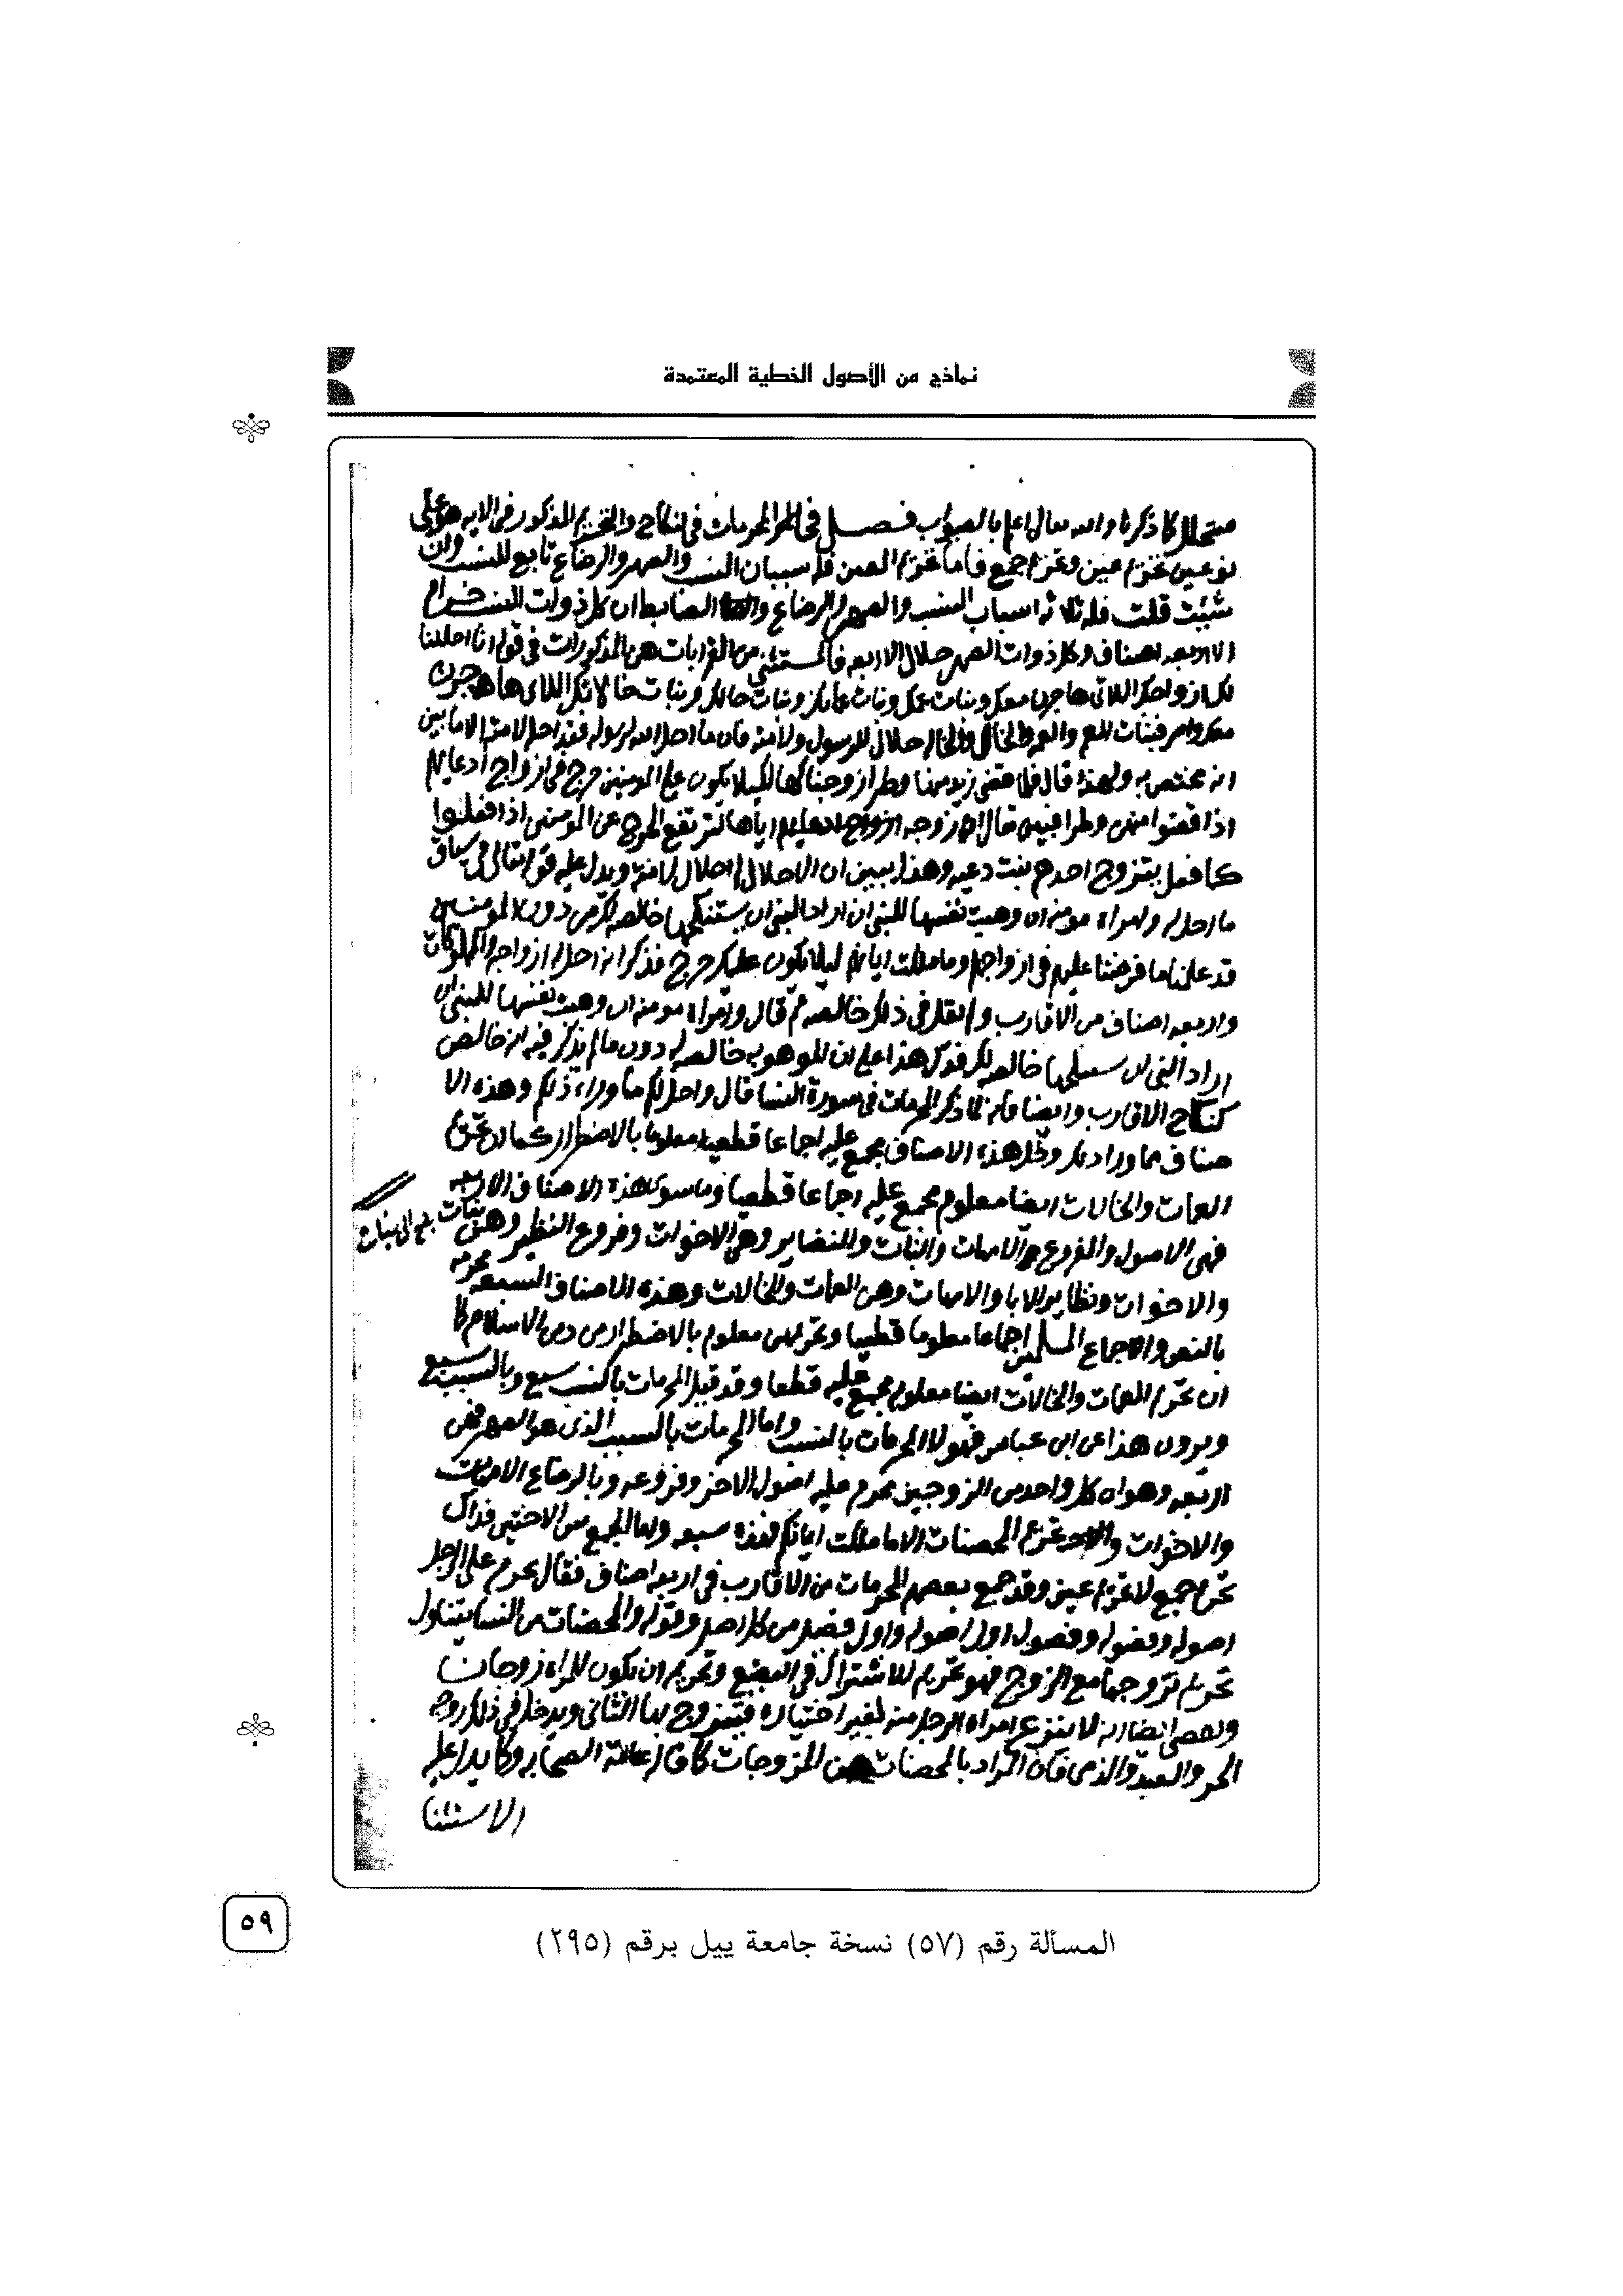 نماذج من الأصول الخطية المعتمدة
كما ذكرنا والله تعالى اعلم بالصواب فصل في المحرمات في النكاح والتحريم المذكور في الايه هو على
نوعين تحريم عين وتحريم جمع فاما تحريم العين فله سببان النسب والصهر والرضاع تابع للنسب وان
شئت قلت فله ثلاثه اسباب النسب والصهر والرضاع الضابط ان كل ذوات النسب حرام
الا اربعه اصناف وكل ذوات الصهر حلال الا اربعه فالمستثنى من القرابات هن المذكورات في قوله انا احللنا
لك ازواجك اللاتي وبنات عمك وبنات عماتك وبنات خالك وبنات خالاتك اللاتي هاجرن
معك فبنات العم والعمه والخال والخاله حلال للرسول ولامته فان ما احل الله لرسوله فقد احل لامته الا ما بين
انه مختص به ولهذا قال فلما قضى زيد منها وطرا زوجناكها لكيلا يكون على المومنين حرج في ازواج ادعيايهم
اذا قضوا منهن وطرا فبين انه زوجه اياها ليرتفع الحرج عن المومنين اذا فعلوا
كما فعل بتزوج احدهم دعيه وهذا يبين ان الاحلال له احلال لامته ويدل عليه قوله تعالى في سياق
ما احل له وامراه مومنه ان وهبت نفسها للنبي ان اراد النبي ان يستنكحها خالصه لك من دون المومنين
قد علمنا ما فرضنا عليهم في ازواجهم وما ملكت ايمانهم ليلا يكون عليك حرج فذكر انه احل له ازواجه والمملوكات
واربعه اصناف من الاقارب ولم يقل في ذلك خالصه ثم قال وامراه مومنه ان وهبت نفسها للنبي ان
اراد النبي ان خالصه لك فدل هذا على ان الموهوبه خالصه له دون ما لم يذكر فيه انه خالص
كنكاح الاقارب وايضا فانه لما ذكر المحرمات في سورة النسا قال واحل لكم ما وراء ذلكم وهذه الا
صناف مما ورا ذلك وحل هذه الاصناف مجمع عليه اجماعا قطعيا معلوما بالاضطرار كما ان تحريم
العمات والخالات ايضا معلوم مجمع عليه اجماعا قطعيا وما سوى هذه الاصناف الاربعه
فهي الاصول والفروع والامهات والبنات وهي الاخوات وفروع النظير وهن بنات
والاخوات ونظاير الابا والامهات وهن العمات والخالات وهذه الاصناف السبعه محرمه
بالنص والاجماع المسلمين اجماعا معلوما قطعيا وتحريمهن معلوم بالاضطرار من دين الاسلام كما
ان تحريم العمات والخالات ايضا معلوم مجمع عليه قطعا وقد قيل المحرمات بالنسب سبع وبالسبب سبع
ويروون هذا عن ابن عباس فهولا المحرمات بالنسب واما المحرمات بالسبب الذي هو الصهر فهن
اربعه وهو ان كل واحد من الزوجين يحرم عليه اصول الاخر وفروعه وبالرضاع الامهات
والاخوات تحريم المحصنات الا ما ملكت ايمانكم فهذه سبعه واما الجمع بين الاختين فذاك
تحريم جمع لا تحريم عين وقد جمع بعضهم المحرمات من الاقارب في اربعه اصناف فقال يحرم على الرجل
اصوله وفصوله وفصول اول اصوله واول فصل من كل اصل وقوله والمحصنات من النسا يتناول
تحريم تزوجها مع الزوج فهو تحريم للاشتراك في البضع وتحريم ان يكون للمراه
ايضا انه لا ينتزع امراه الرجل منه بغير اختياره فيتزوج بها الثاني ويدخل في ذلك زوجه
الحر والعبد والذمي فان المراد بالمحصنات هن المزوجات كما قاله عامة الصحابه وكما يدل عليه
الاستثنا
المسألة رقم (٥٧) نسخة جامعة ييل برقم (٢٩٥)
٥٩